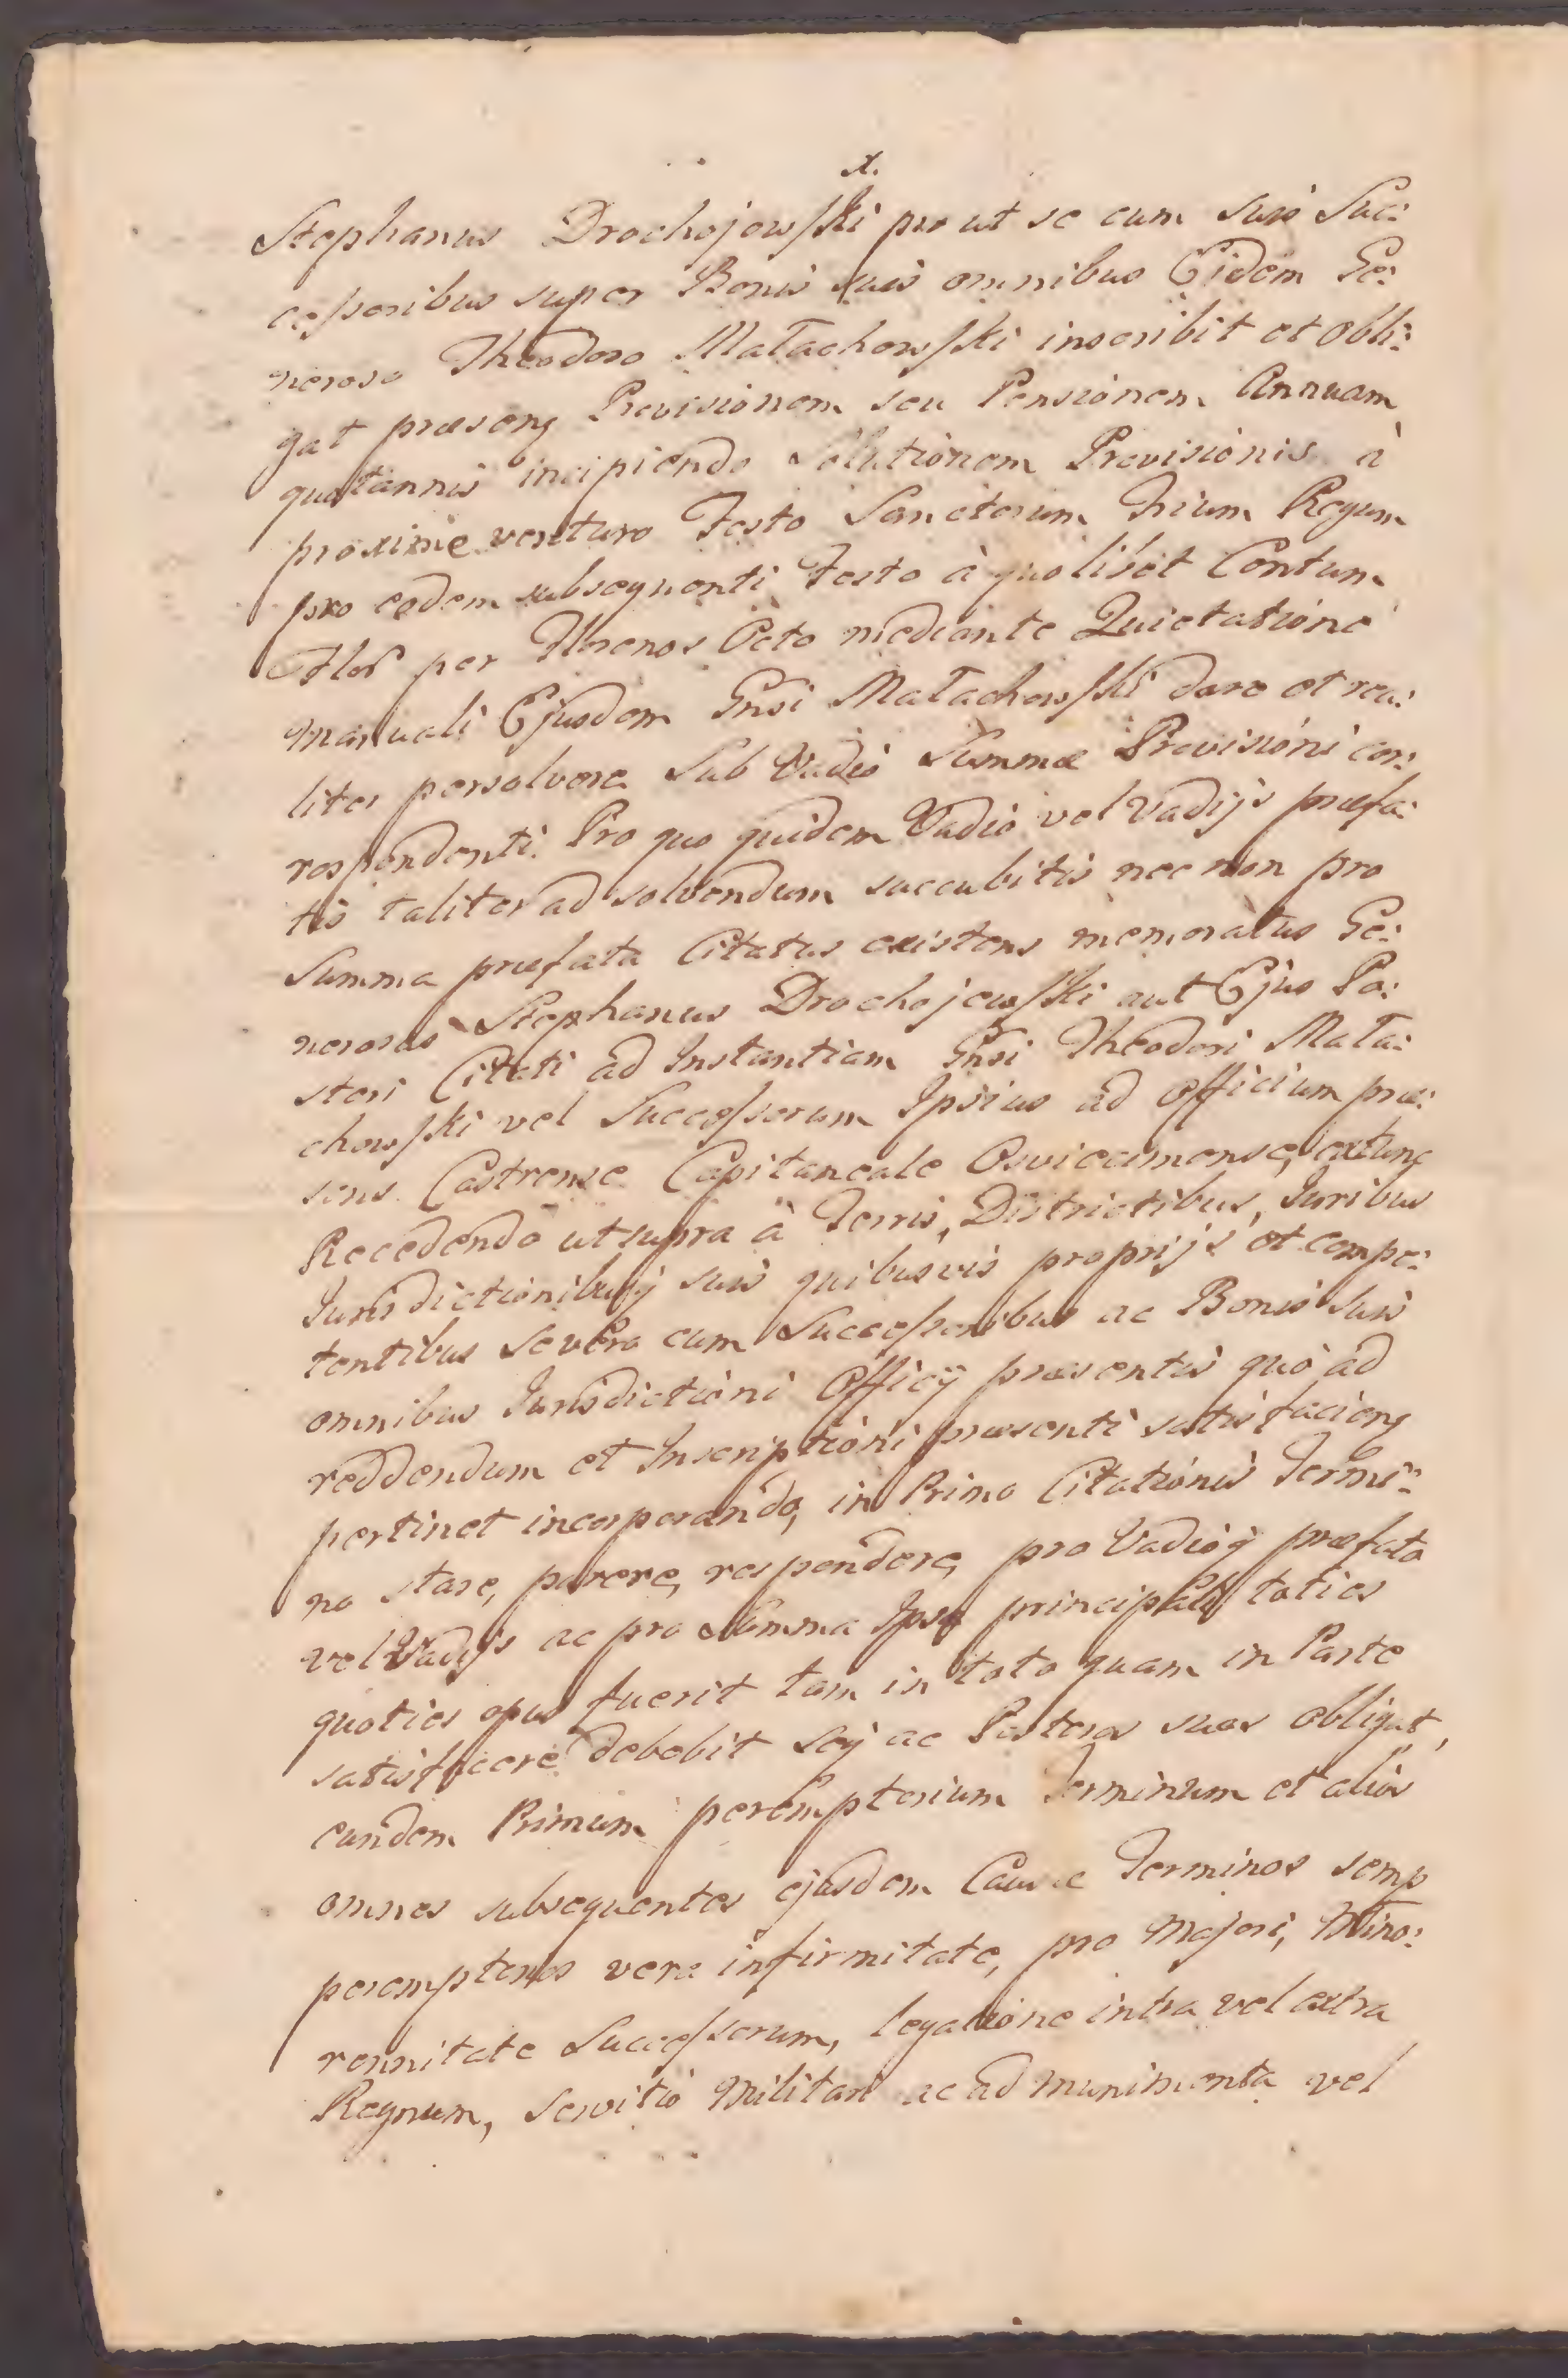 x.
Stephanus Drochojowski pro ut se cum suis Suc:
cessoribus super Bonis suis omnibus Eidem Ge:
neroso Theodoro Małachowski inscribit et obli:
gat præsenq Provisionem seu Pensionem Annuam
quotannis incipiendo Solutionem Provisionis à
proxime venturo Festo Sanctorum Trium Regum
pro eodem subsequenti Festo à quolibet Centum
Flor per Florenos Octo mediante Quietatione
manuali Ejusdem Gnsi Małachowski dare et rea:
liter persolvere. Sub Vadio Summæ Provisioni cor:
respondenti. Pro quo quidem Vadio vel Vadijs præfa:
tis taliter ad solvendum succubitis nec non pro
Summa præfata Citatus existens memoratus Ge:
nerosus Stephanus Drochojewski aut Ejus Po:
steri Citati ad Instantiam Gnsi Theodori Mała:
chowski vel Successorum Ipsius ad officium præ:
sens Castrense Capitaneale Osviecimense, extunc
Recedendo ut supra à Terris, Districtibus, Juribus
Jurisdictionibusq suis quibusvis proprijs et compe:
tentibus Se vero cum Successoribus ac Bonis suis
omnibus Jurisdictioni Officÿ præsentis quo ad
reddendum et Inscriptioni præsenti satisfacienq
pertinet incorporando, in Primo Citationis Termi:
no stare, parere, respondere, pro Vadioq præfato
vel Vadijs ac pro Summa Ipsa principali, toties
quoties opus fuerit tam in toto quam in Parte
satisfacere debebit Seq ac Posteros suos obligat,
eundem Primum peremptorium Terminum et alios
omnes subsequentes ejusdem Causæ Terminos semp
peremptorios vera infirmitate, pro Majori, Mino:
rennitate Successorum, legatione intra vel extra
Regnum, servitio Militari ac ad munimenta vel